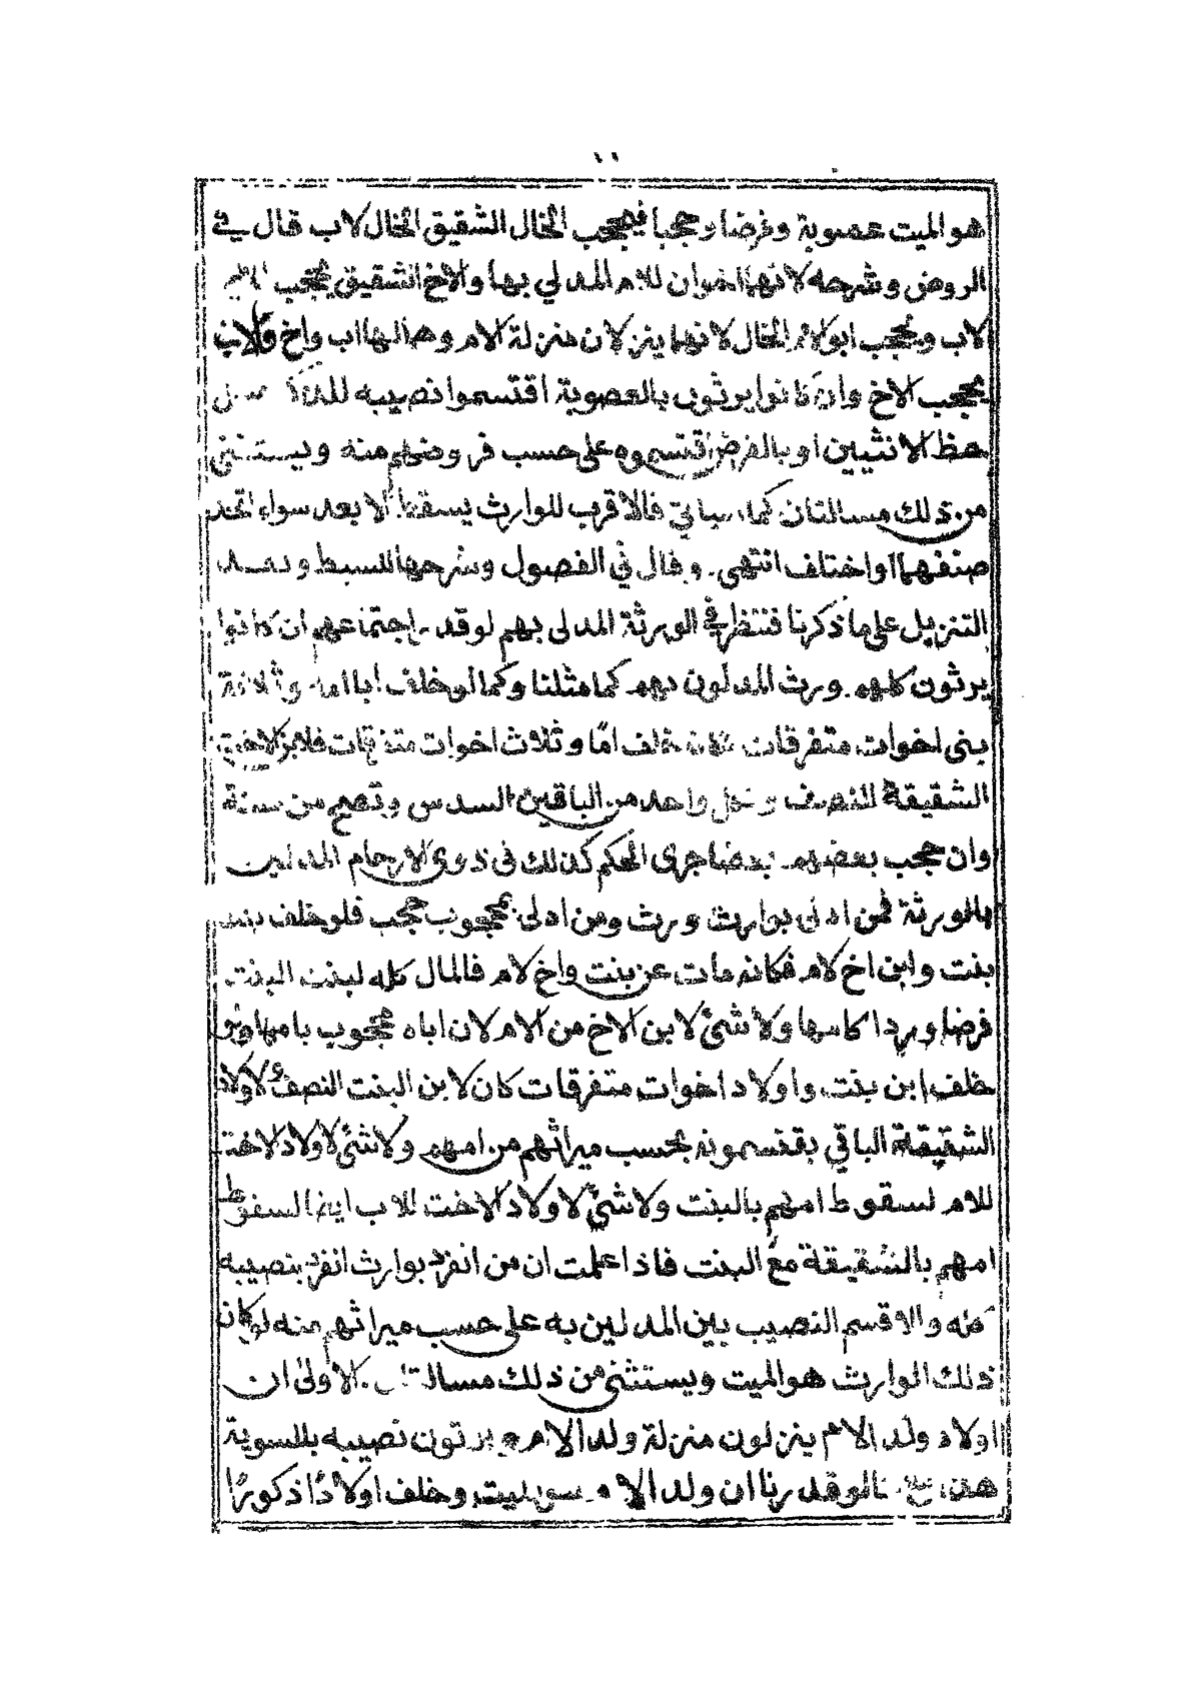 ١١
هو الميت عصوبة وفرضا وحجبا فيحجب الخال الشقيق الخال لاب قال في
الروض وشرحه لانهما اخوان للام المدلي بها والاخ الشقيق يحجب
لاب ويحجب ابو لام الخال لانهما ينزلان منزلة الام وهنا لها اب واخ والاب
يحجب الاخ وان كانوا يرثون بالعصوبة اقتسموا نصيبه للذكر
حظ الانثيين او بالفرض اقتسموه على حسب فروضهم منه ويستثنى
من ذلك مسالتان كما سياتي فالاقرب للوارث يسقط الابعد سواء اتحد
صنفهما او اختلف انتهى وقال في الفصول وشرحها للسبط وبعد
التنزيل على ما ذكرنا فننظر في الورثة المدلى بهم لو قدر اجتماعهم ان كانوا
يرثون كلهم ورث المدلون بهم كما مثلنا وكما لو خلف ابا ام وثلاثة
بنى اخوات متفرقات خلف امًا وثلاث اخوات متفرقات فلابن الاخت
الشقيقة النصف ولكل واحد من الباقين السدس وتصح من ستة
وان حجب بعضهم بعضا جرى الحكم كذلك فى ذوى الارحام المدلين
بالورثة فمن ادلى بوارث ورث ومن ادلى بمحجوب حجب فلو خلف بنت
بنت وابن اخ لام فكانه مات عن بنت واخ لام فالمال كله لبنت البنت
فرضا وردا كامها ولا شئ لابن الاخ من الام لان اباه محجوب بامها ولو
خلف ابن بنت واولاد اخوات متفرقات كان لابن البنت النصف ولاولاد
الشقيقة الباقي يقتسمونه بحسب ميراثهم من امهم ولا شئ لاولاد الاخت
للام لسقوط امهم بالبنت ولا شئ لاولاد الاخت للاب ايضا لسقوط
امهم بالشقيقة مع البنت فاذا علمت ان من انفرد بوارث انفرد بنصيبه
كله والا قسم النصيب بين المدلين به على حسب ميراثهم منه لو كان
ذلك الوارث هو الميت ويستثنى من ذلك مسالتان الاولى ان
اولاد ولد الام ينزلون منزلة ولد الام ويرثون نصيبه بالسوية
هذا مع انا لو قدرنا ان ولد الام هو الميت وخلف اولادًا ذكورًا